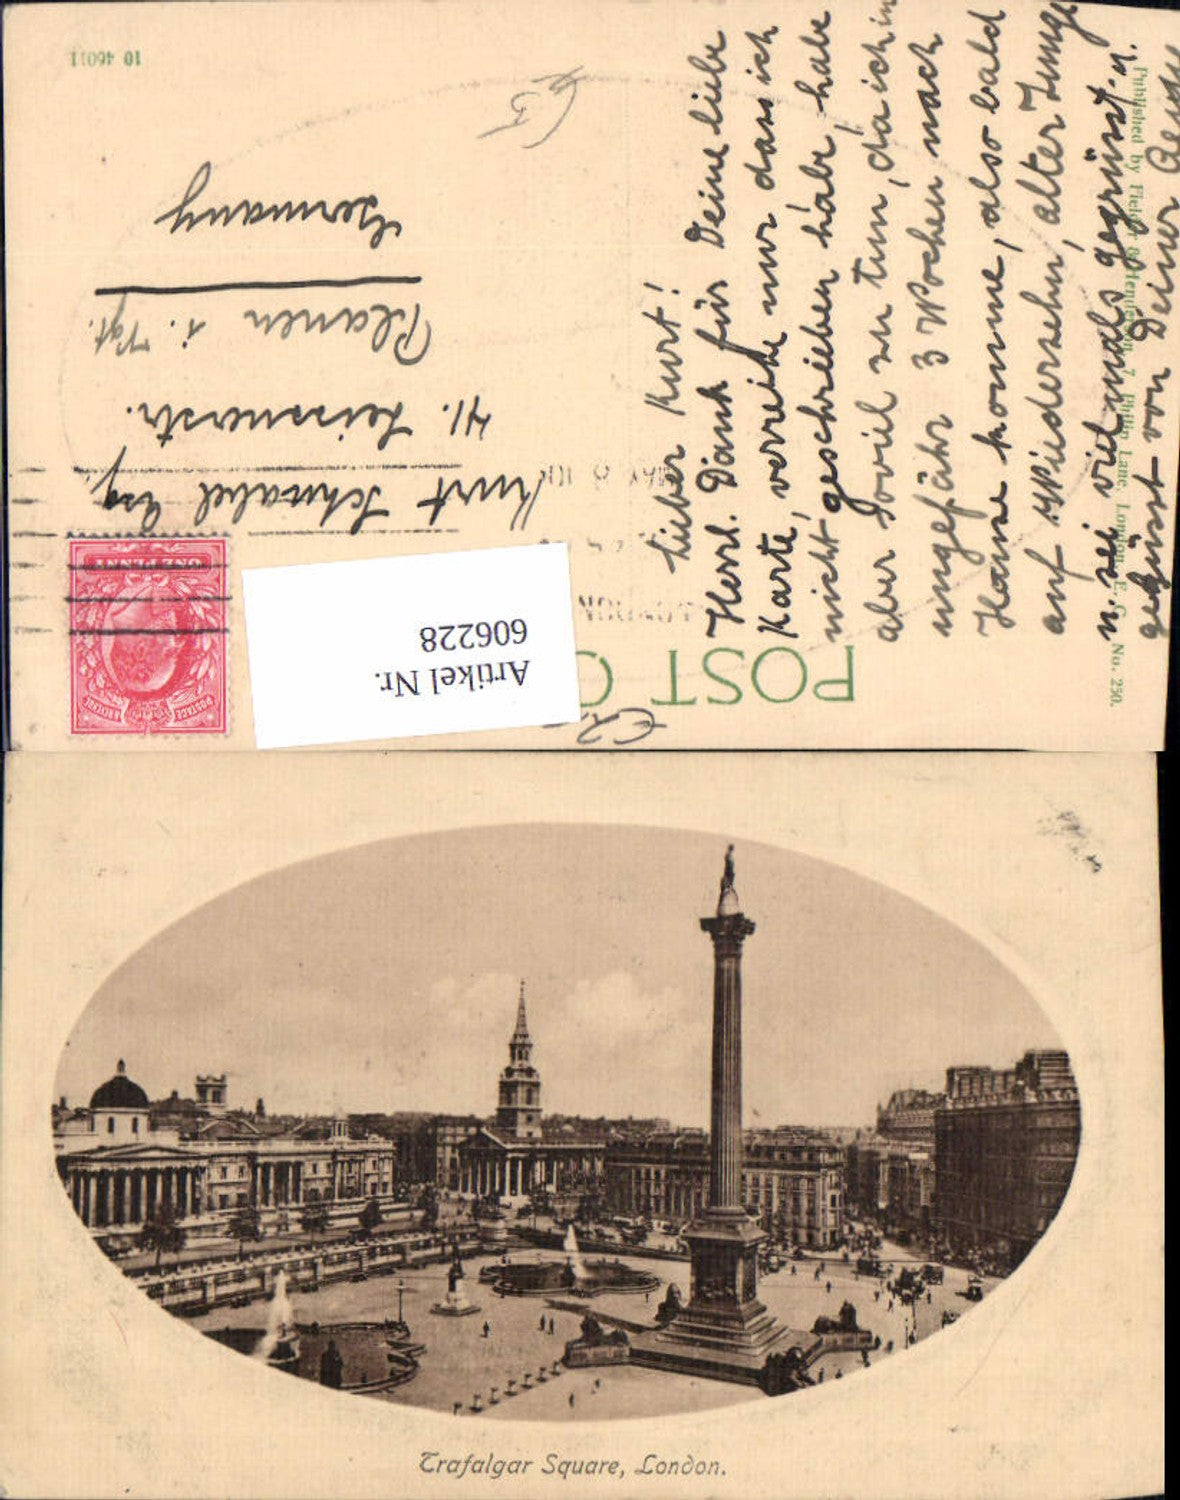 POST C
Artikel Nr.
606228
Lieber Kurt!
Herzl. Dank für Deine liebe
Karte, verzeihe nur dass ich
nicht geschrieben habe, habe
aber soviel zu tun, da ich in
ungefähr 3 Wochen nach
Hause komme, also bald
auf Wiedersehn, alter Junge
u. sei vielmals gegrüsst u.
geküsst von Deiner
Published by Fielder Henderson, 7, Philip Lane, London, E. C. No. 250.
LONDON
MAY 8
POSTAGE
ONE PENNY
Kurt Schnabel Esq
41. Leissnerstr.
Plauen i. Vgt.
Germany
10 46011
Trafalgar Square, London.